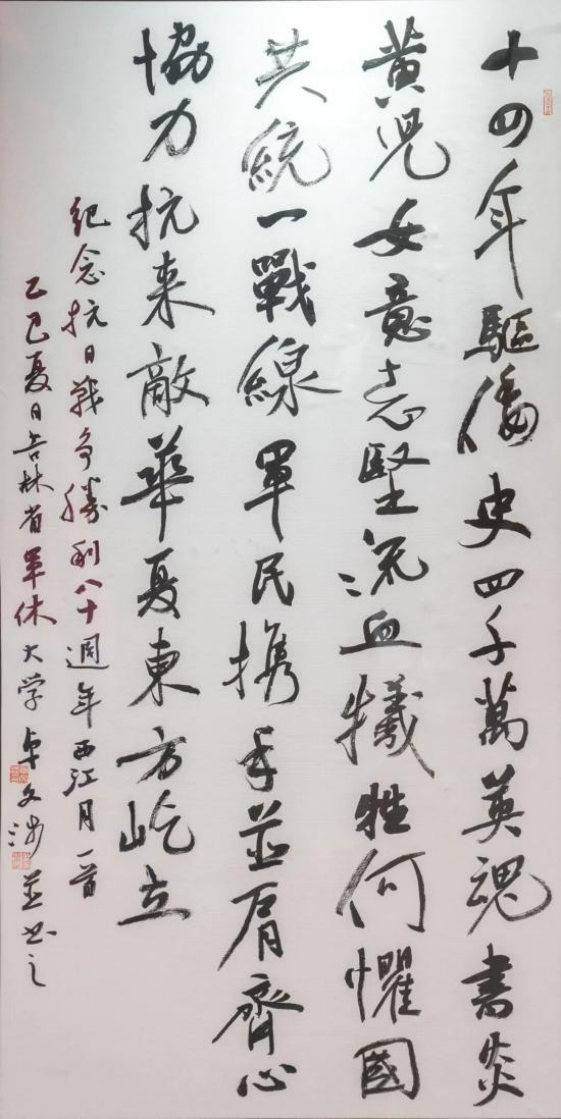 十四年驅倭史四千萬英魂書炎
黄児女意志堅流血犠牲何懼國
共統一戰線軍民携手並肩齊心
協力抗来敵華夏東方屹立
紀念抗日戰争勝利八十週年西江月一首
乙巳夏日吉林省軍休大学卓文涉並书之